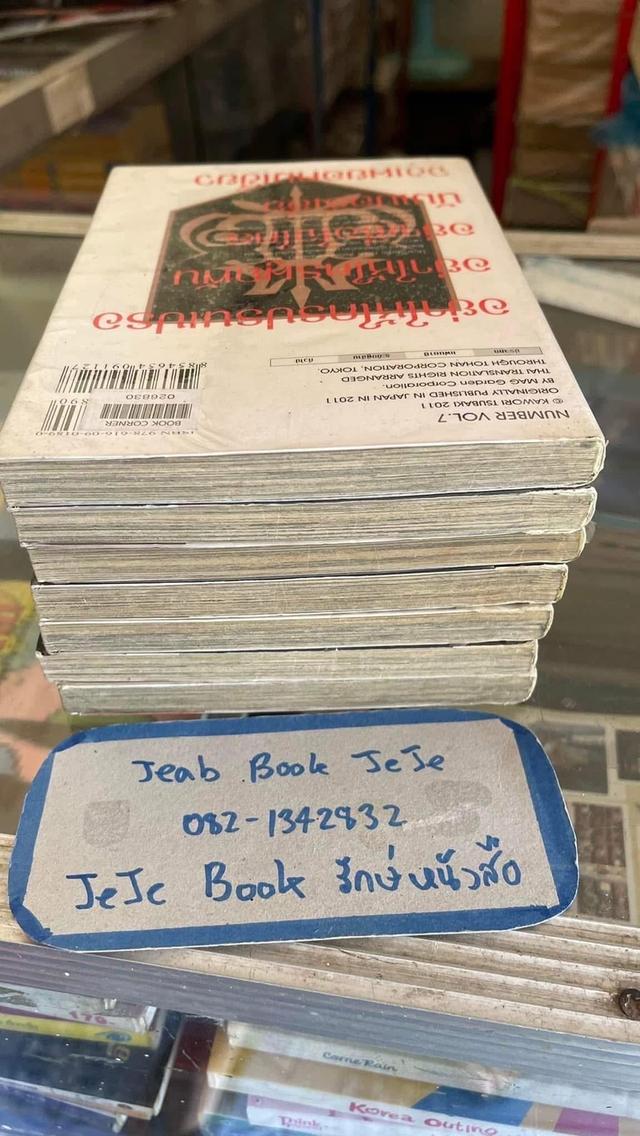 อย่าให้ใครปรบแปรง
อย่าให้ใครผูกพัน
NUMBER VOL.7
© KAWORI TSUBAKI 2011
ORIGINALLY PUBLISHED IN JAPAN IN 2011
BY MAG Garden Corporation.
THAI TRANSLATION RIGHTS ARRANGED
THROUGH TOHAN CORPORATION, TOKYO.
BOOK CORNER
026830
ISBN 978-616-09-0189-0
890
8854654091127
Jeab Book JeJe
082-1342832
JeJe Book รักษ์หนังสือ
179.-
Corne Rain
Korea Outing
Think